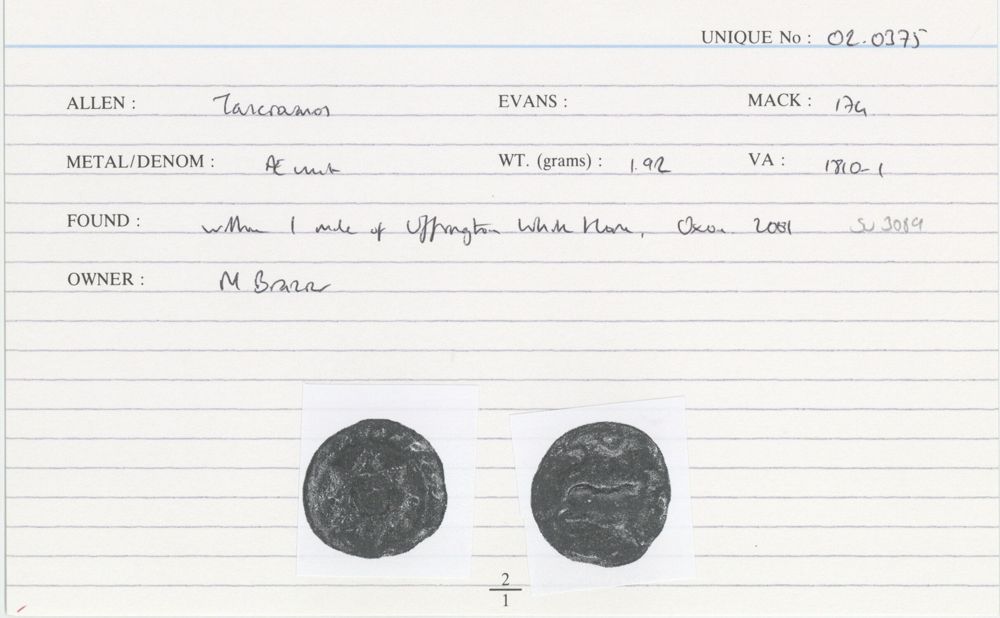 UNIQUE No : 02.0375
ALLEN : Tasciovanos EVANS : MACK : 174
METAL/DENOM : Æ unit WT. (grams) : 1.92 VA : 1810-1
FOUND : within 1 mile of Uffington White Horse, Oxon. 2001 SU 3089
OWNER : M
2
1